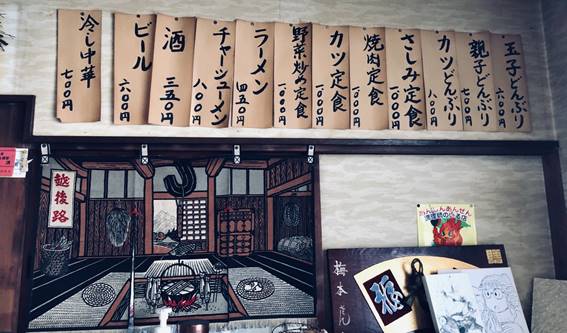 玉子どんぶり 六〇〇円
親子どんぶり 七〇〇円
カツどんぶり 八〇〇円
さしみ定食 一〇〇〇円
焼肉定食 一〇〇〇円
カツ定食 一〇〇〇円
野菜炒め定食 一〇〇〇円
ラーメン 四五〇円
チャーシューメン 八〇〇円
酒 三五〇円
ビール 六〇〇円
冷し中華 七〇〇円
越後路
あんしんあんぜん
梅本さん